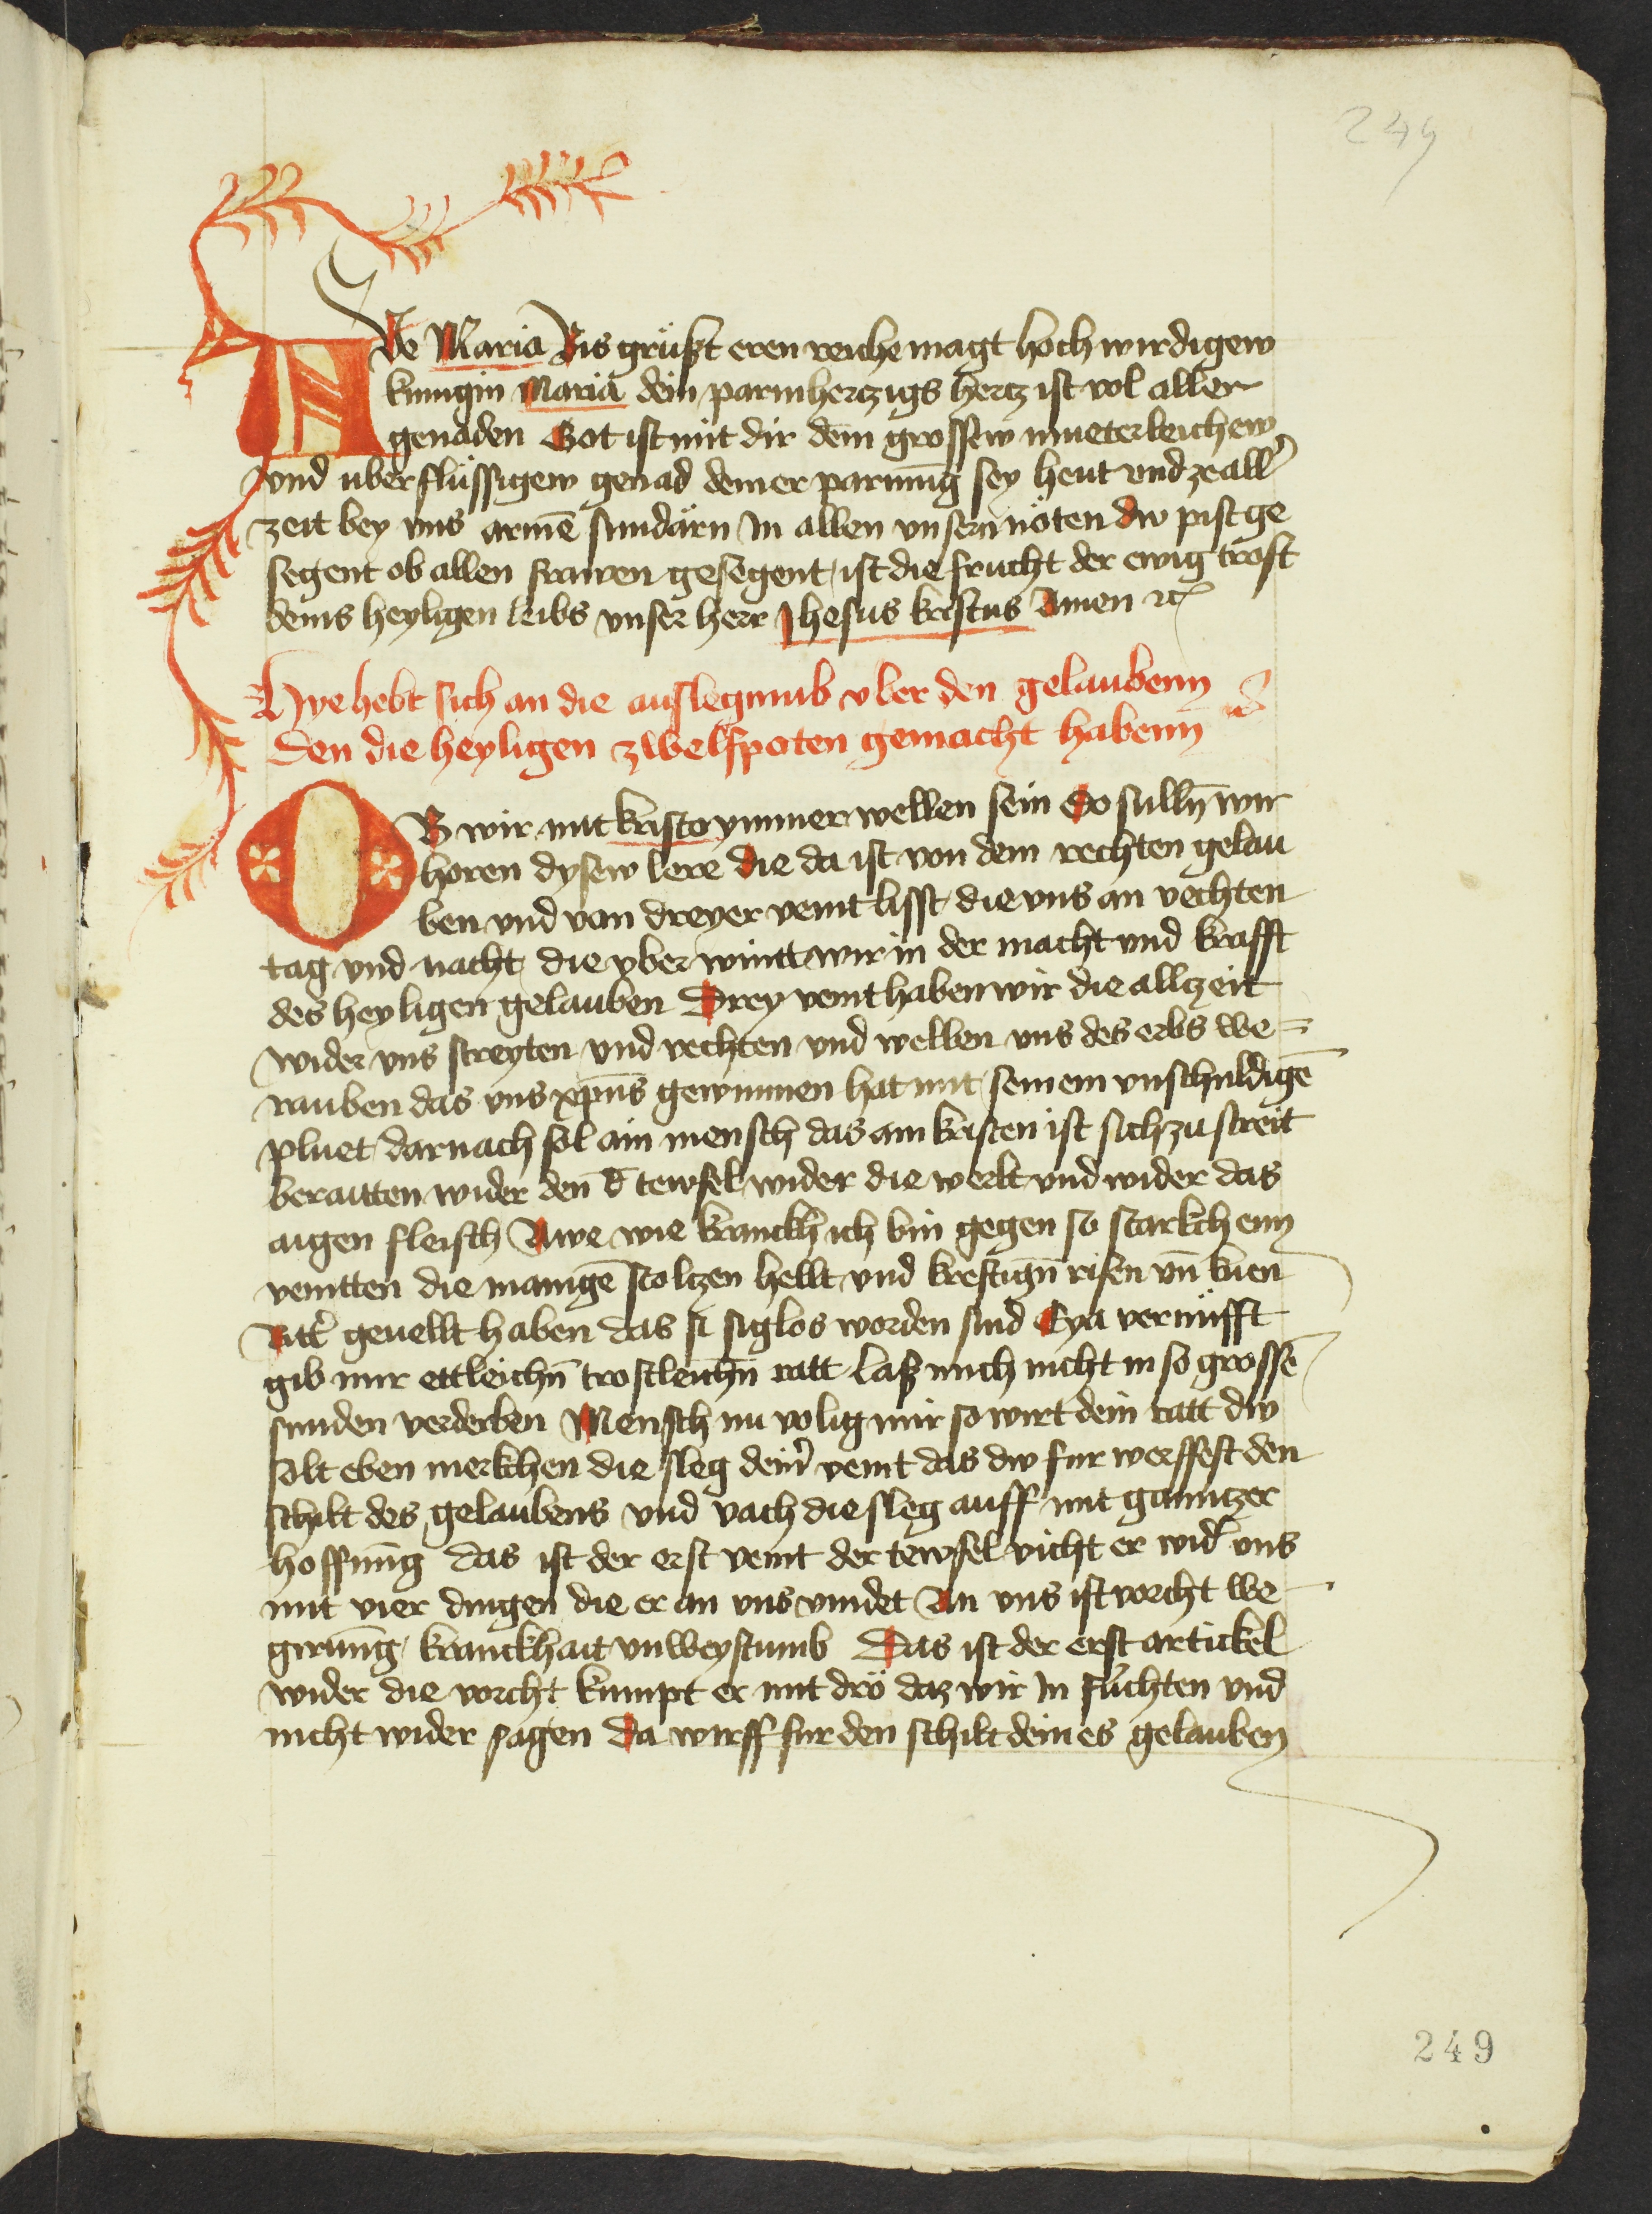 249
AVe Maria Bis grüßt eren reiche magt hoch wirdigew
kunigin Maria dein parmhertzigs hertz ist vol aller
genaden Got ist mit dir dein grossew mueterleichew
vnd uberflüssigew genad dein er parmūg sey heut vnd ze all̕
zeit bey vns armē sundärn In allen vnsern nöten dw pist ge
segent ob allen frawen gesegent ist die frucht der ewig trost
deins heyligen leibs vnser herr Jhesus kristus Amen ꝛc
Hye hebt sich an die auslegnub vber den gelaubenn
den die heyligen zwelfpoten gemacht habenn
OB wir mit kristo ymmer wellen sein So sullñ wir
horen dysew lere die da ist von dem rechten gelau
ben vnd von dreyer veint lisst die vns an vechten
tag vnd nacht die vber wintt wir in der macht vnd krafft
des heyligen gelauben Drey veint haben wir die allczeit
wider vns streyten vnd vechten vnd wellen vns des erbs we=
rauben das vns xp̄us gewunnen hat mit seinem vnschuldigē
pluet darnach sol ain mensch das ain kristen ist sich zu streit
beraitten wider den d̄ tewfel wider die werlt vnd wider das
aigen fleisch Awe wie kranckh ich bin gegen so starkchenn
veintten die manigē stoltzen hellt vnd kreftign̄ risen vn̄ kuen
Ritt̕ geuellt haben das si siglos worden sind Eya vernüfft
gib mir ettleichn̄ trostleichn̄ ratt laß mich nicht in so grossē
sunden verderben Mensch nu volig mir so wirt dein ratt dw
solt eben merkchen die sleg dein̕ veint das dw fur werffest den
schilt des gelaubens vnd vach die sleg auff mit ganntzer
hoffnūg das ist der erst veint der tewfel vicht er wid̕ vns
mit vier dingen die er an vns vindet An vns ist vorcht we
girūng kranckhait vnweystumb Das ist der erst artickel
wider die vorcht kumpt er mit drö daz wir In fürchten vnd
nicht wider sagen Da wirff fur den schilt deines gelauben
249